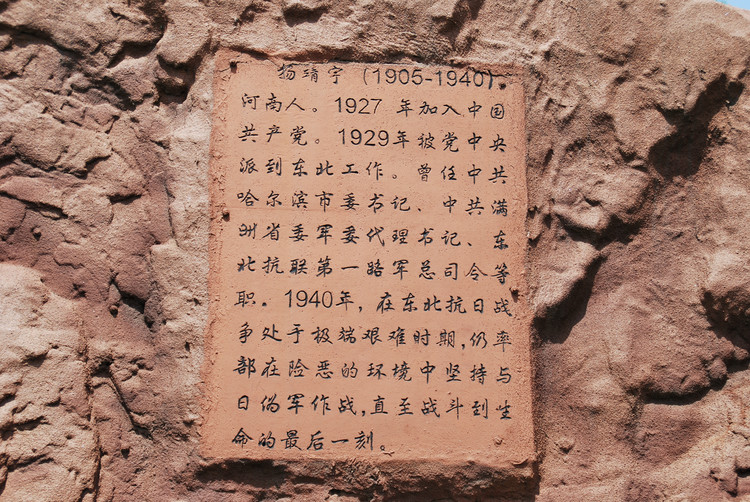 杨靖宇（1905-1940），
河南人。1927年加入中国
共产党。1929年被党中央
派到东北工作。曾任中共
哈尔滨市委书记、中共满
洲省委军委代理书记、东
北抗联第一路军总司令等
职。1940年，在东北抗日战
争处于极端艰难时期，仍率
部在险恶的环境中坚持与
日伪军作战，直至战斗到生
命的最后一刻。